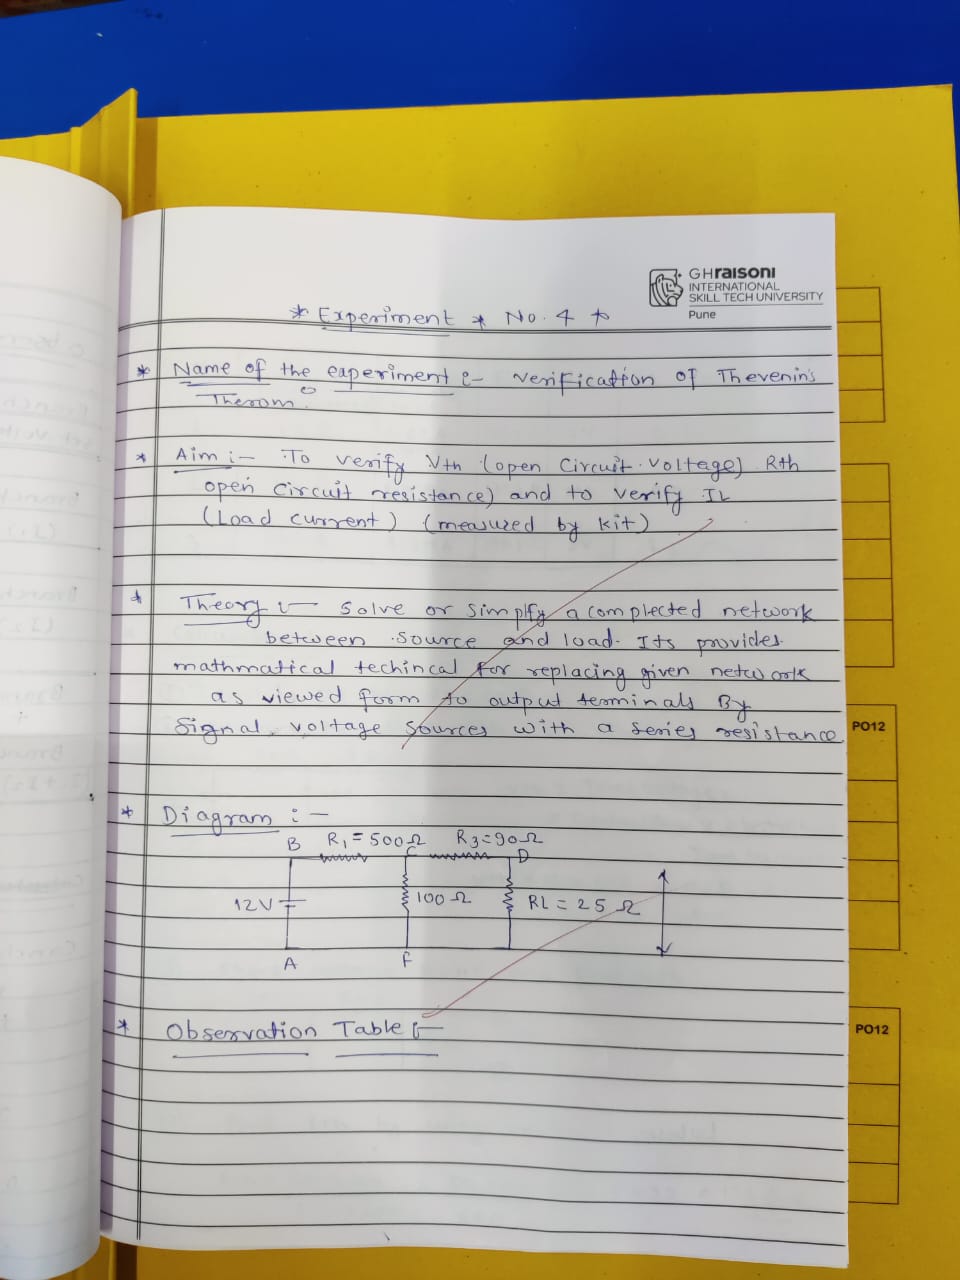 GHraisoni
INTERNATIONAL
SKILL TECH UNIVERSITY
Pune
* Experiment * No. 4 *
* Name of the eaperiment :- verification of Thevenin's
Therom.
* Aim :- To verify Vth (open Circuit voltage) Rth
open circuit resistance) and to verify IL
(Load current) (measured by kit)
* Theory :- Solve or simplfy a complected network
between source and load. Its provides
mathmatical techincal for replacing given network
as viewed form to output terminals By
Signal voltage sources with a series resistance
PO12
* Diagram :-
B R₁=500Ω C R3=90Ω D
12V 100Ω RL=25Ω
A F
* Observation Table :-
PO12